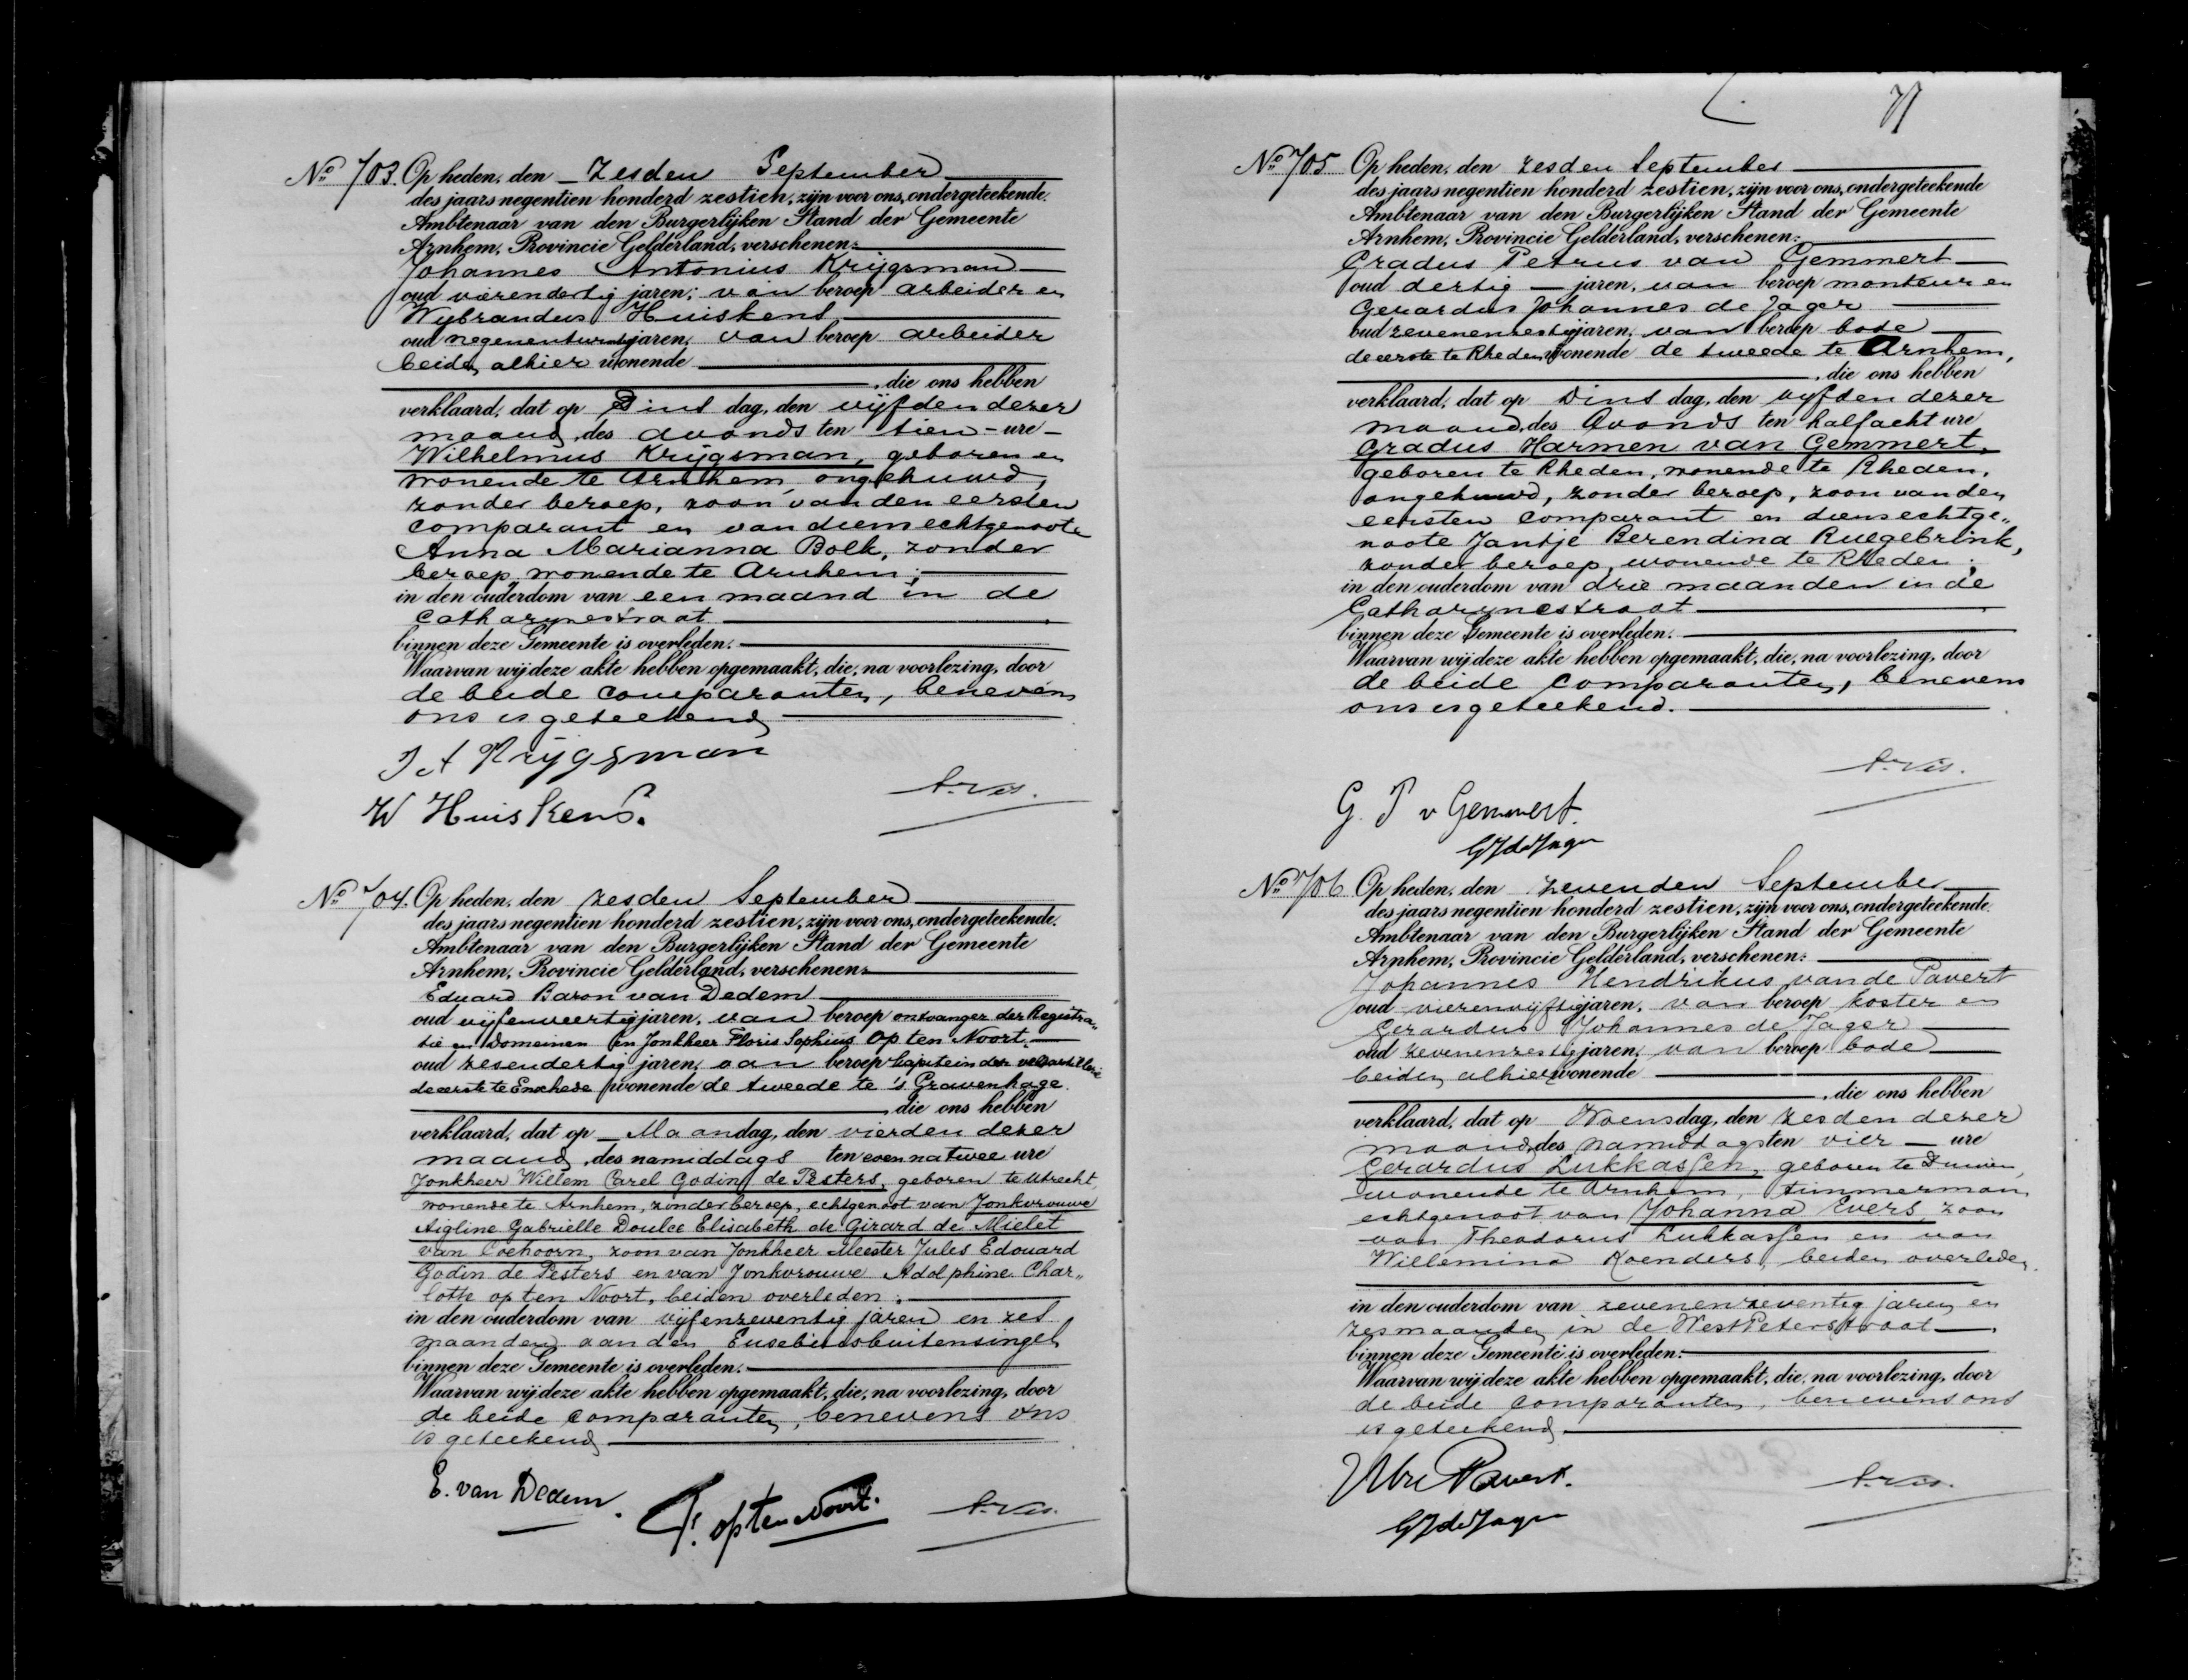 No 703. Op heden, den zesden September
des jaars negentien honderd zestien, zijn voor ons, ondergeteekende
Ambtenaar van den Burgerlijken Stand der Gemeente
Arnhem, Provincie Gelderland, verschenen:
Johannes Antonius Krijgsman
oud vierendertig jaren, van beroep arbeider en
Wijbrandus Huiskens,
oud negenentwintig jaren, van beroep arbeider
beiden alhier wonende
, die ons hebben
verklaard, dat op Dinsdag, den vijfden dezer
maand, des avonds ten tien ure
Wilhelmus Krijgsman, geboren en
wonende te Arnhem, ongehuwd,
zonder beroep, zoon van den eersten
comparant en van diens echtgenoote
Anna Marianna Bolk, zonder
beroep, wonende te Arnhem;
in den ouderdom van een maand in de
Catharynestraat
binnen deze Gemeente is overleden.
Waarvan wij deze akte hebben opgemaakt, die, na voorlezing, door
de beide comparanten, benevens
ons is geteekend
J A Krijgsman
W Huiskens.
No 704. Op heden, den zesden September
des jaars negentien honderd zestien, zijn voor ons, ondergeteekende
Ambtenaar van den Burgerlijken Stand der Gemeente
Arnhem, Provincie Gelderland, verschenen:
Eduard Baron van Dedem
oud vijfenveertig jaren, van beroep ontvanger der Registra„
tie en Domeinen en Jonkheer Floris Sophius Op ten Noort,
oud zesendertig jaren, van beroep kapitein der veldartillerie
de eerste te Enschede wonende de tweede te 's Gravenhage
, die ons hebben
verklaard, dat op Maandag, den vierden dezer
maand, des namiddags ten even na twee ure
Jonkheer Willem Carel Godin de Pesters, geboren te Utrecht,
wonende te Arnhem, zonder beroep, echtgenoot van Jonkvrouwe
Aigline Gabrielle Doulce Elisabeth de Girard de Mielet
van Coehoorn, zoon van Jonkheer Meester Jules Edouard
Godin de Pesters en van Jonkvrouwe Adolphine Char„
lotte op ten Noort, beiden overleden;
in den ouderdom van vijfenzeventig jaren en zes
maanden aan den Eusebiusbuitensingel
binnen deze Gemeente is overleden.
Waarvan wij deze akte hebben opgemaakt, die, na voorlezing, door
de beide comparanten, benevens ons
is geteekend
E. van Dedem.
F. op ten Noort.
No 705 Op heden, den zesden September
des jaars negentien honderd zestien, zijn voor ons, ondergeteekende
Ambtenaar van den Burgerlijken Stand der Gemeente
Arnhem, Provincie Gelderland, verschenen:
Gradus Petrus van Gemmert
oud dertig jaren, van beroep monteur en
Gerardus Johannes de Jager
oud zevenenzestig jaren, van beroep bode
de eerste te Rheden wonende de tweede te Arnhem,
, die ons hebben
verklaard, dat op Dinsdag, den vijfden dezer
maand, des Avonds ten halfacht ure
Gradus Harmen van Gemmert,
geboren te Rheden, wonende te Rheden,
ongehuwd, zonder beroep, zoon van den
eersten comparant en diens echtge„
noote Jantje Berendina Ruegebrink,
zonder beroep, wonende te Rheden;
in den ouderdom van drie maanden in de
Catharynestraat
binnen deze Gemeente is overleden.
Waarvan wij deze akte hebben opgemaakt, die, na voorlezing, door
de beide comparanten, benevens
ons is geteekend.
G. P v Gemmert.
GJ de Jager
No 706 Op heden, den zevenden September
des jaars negentien honderd zestien, zijn voor ons, ondergeteekende
Ambtenaar van den Burgerlijken Stand der Gemeente
Arnhem, Provincie Gelderland, verschenen:
Johannes Hendrikus van de Pavert
oud vierenvijftig jaren, van beroep koster en
Gerardus Johannes de Jager
oud zevenenzestig jaren, van beroep bode
beiden alhier wonende
, die ons hebben
verklaard, dat op Woensdag, den zesden dezer
maand, des namiddags ten vier ure
Gerardus Lukkassen, geboren te Duiven,
wonende te Arnhem, timmerman,
echtgenoot van Johanna Evers, zoon
van Theodorus Lukkassen en van
Willemina Koenders, beiden overleden,
in den ouderdom van zevenenzeventig jaren en
zes maanden in de West Peterstraat
binnen deze Gemeente is overleden.
Waarvan wij deze akte hebben opgemaakt, die, na voorlezing, door
de beide comparanten, benevens ons
is geteekend
GJ de Jager